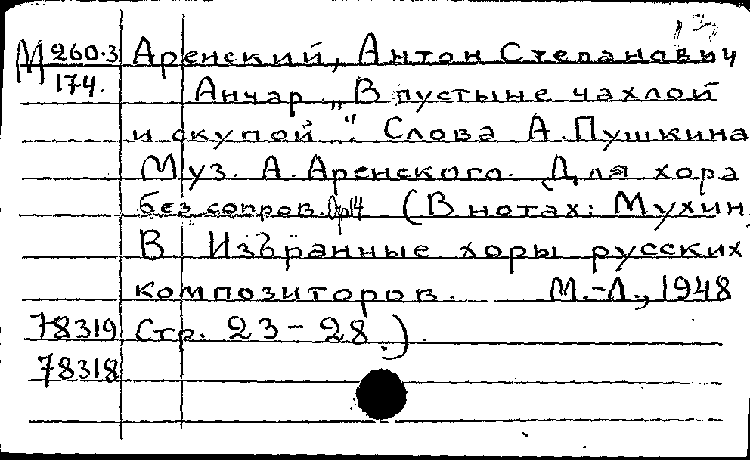 М 260.3 Аренский, Антон Степанович
174. Анчар „В пустыне чахлой
и скупой". Слова А. Пушкина
Муз. А. Аренского. Для хора
без сопров. Op14 (В нотах: Мухин
В Избранные хоры русских
композиторов. М.-Л., 1948
78319 Стр. 23-28.)
78318